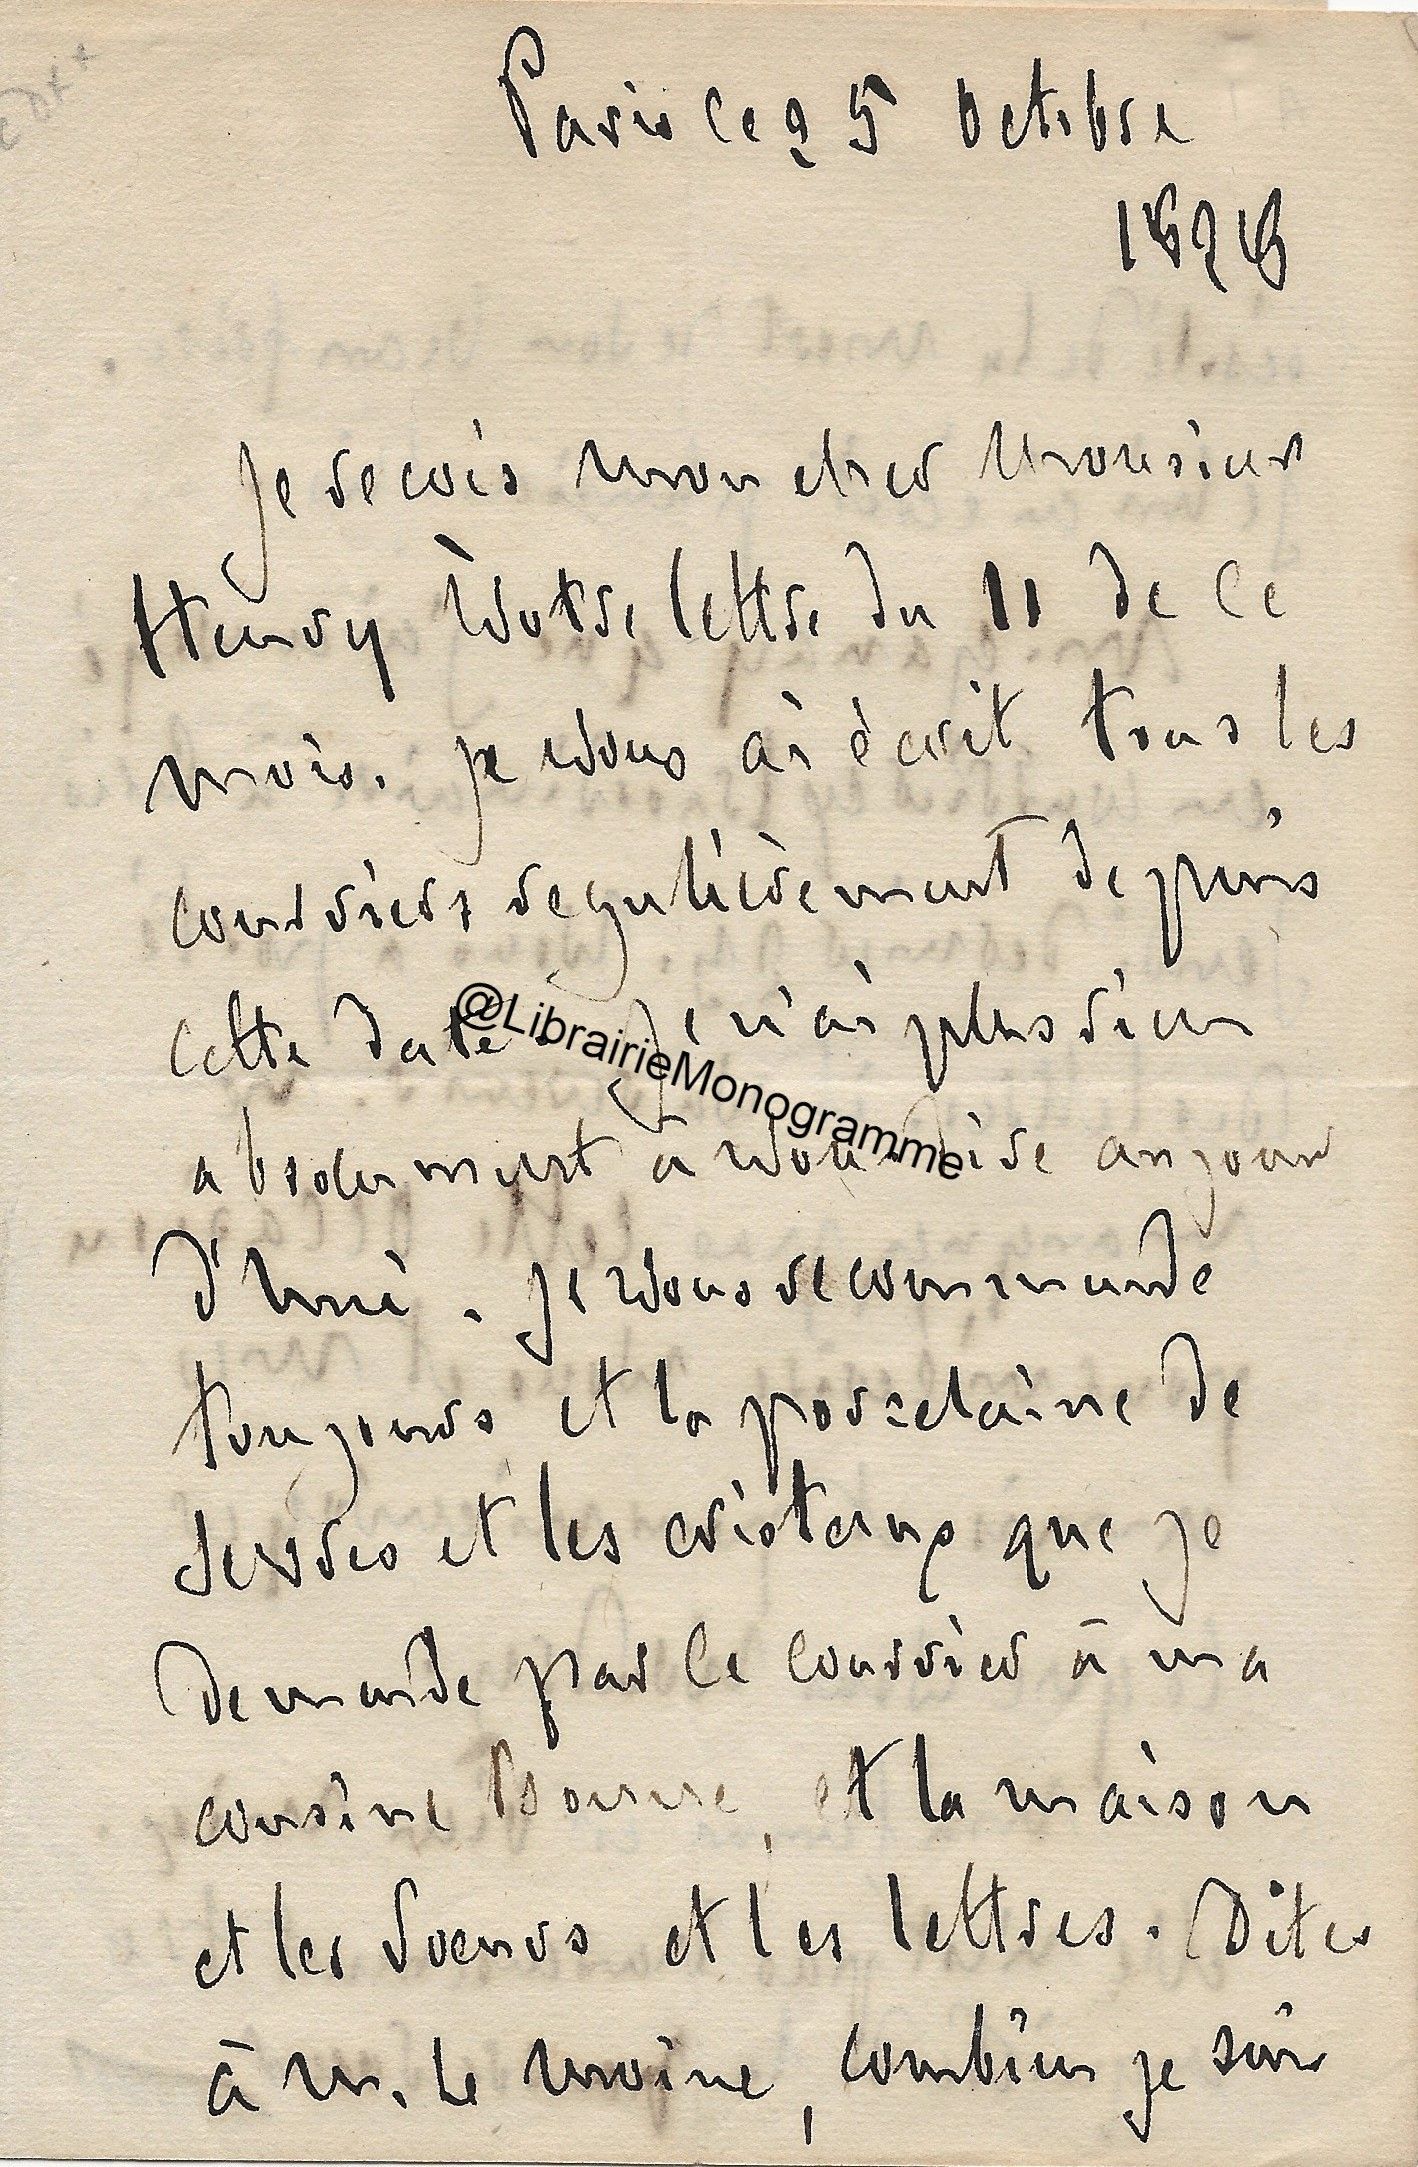 Paris le 25 Octobre
1828
Je reçois mon cher Monsieur
Henry votre lettre du 11 de ce
mois. je vous ai écrit tous les
courriers regulièrement depuis
cette date. Je n'ai plus rien
@LibrairieMonogramme
absolument à vous dire aujour
d'hui. Je vous recommande
toujours et la porcelaine de
Sevres et les cristaux que je
demande par le courrier à ma
cousine et la maison
et les Soeurs et les lettres. Dites
à M. le moine, combien je suis